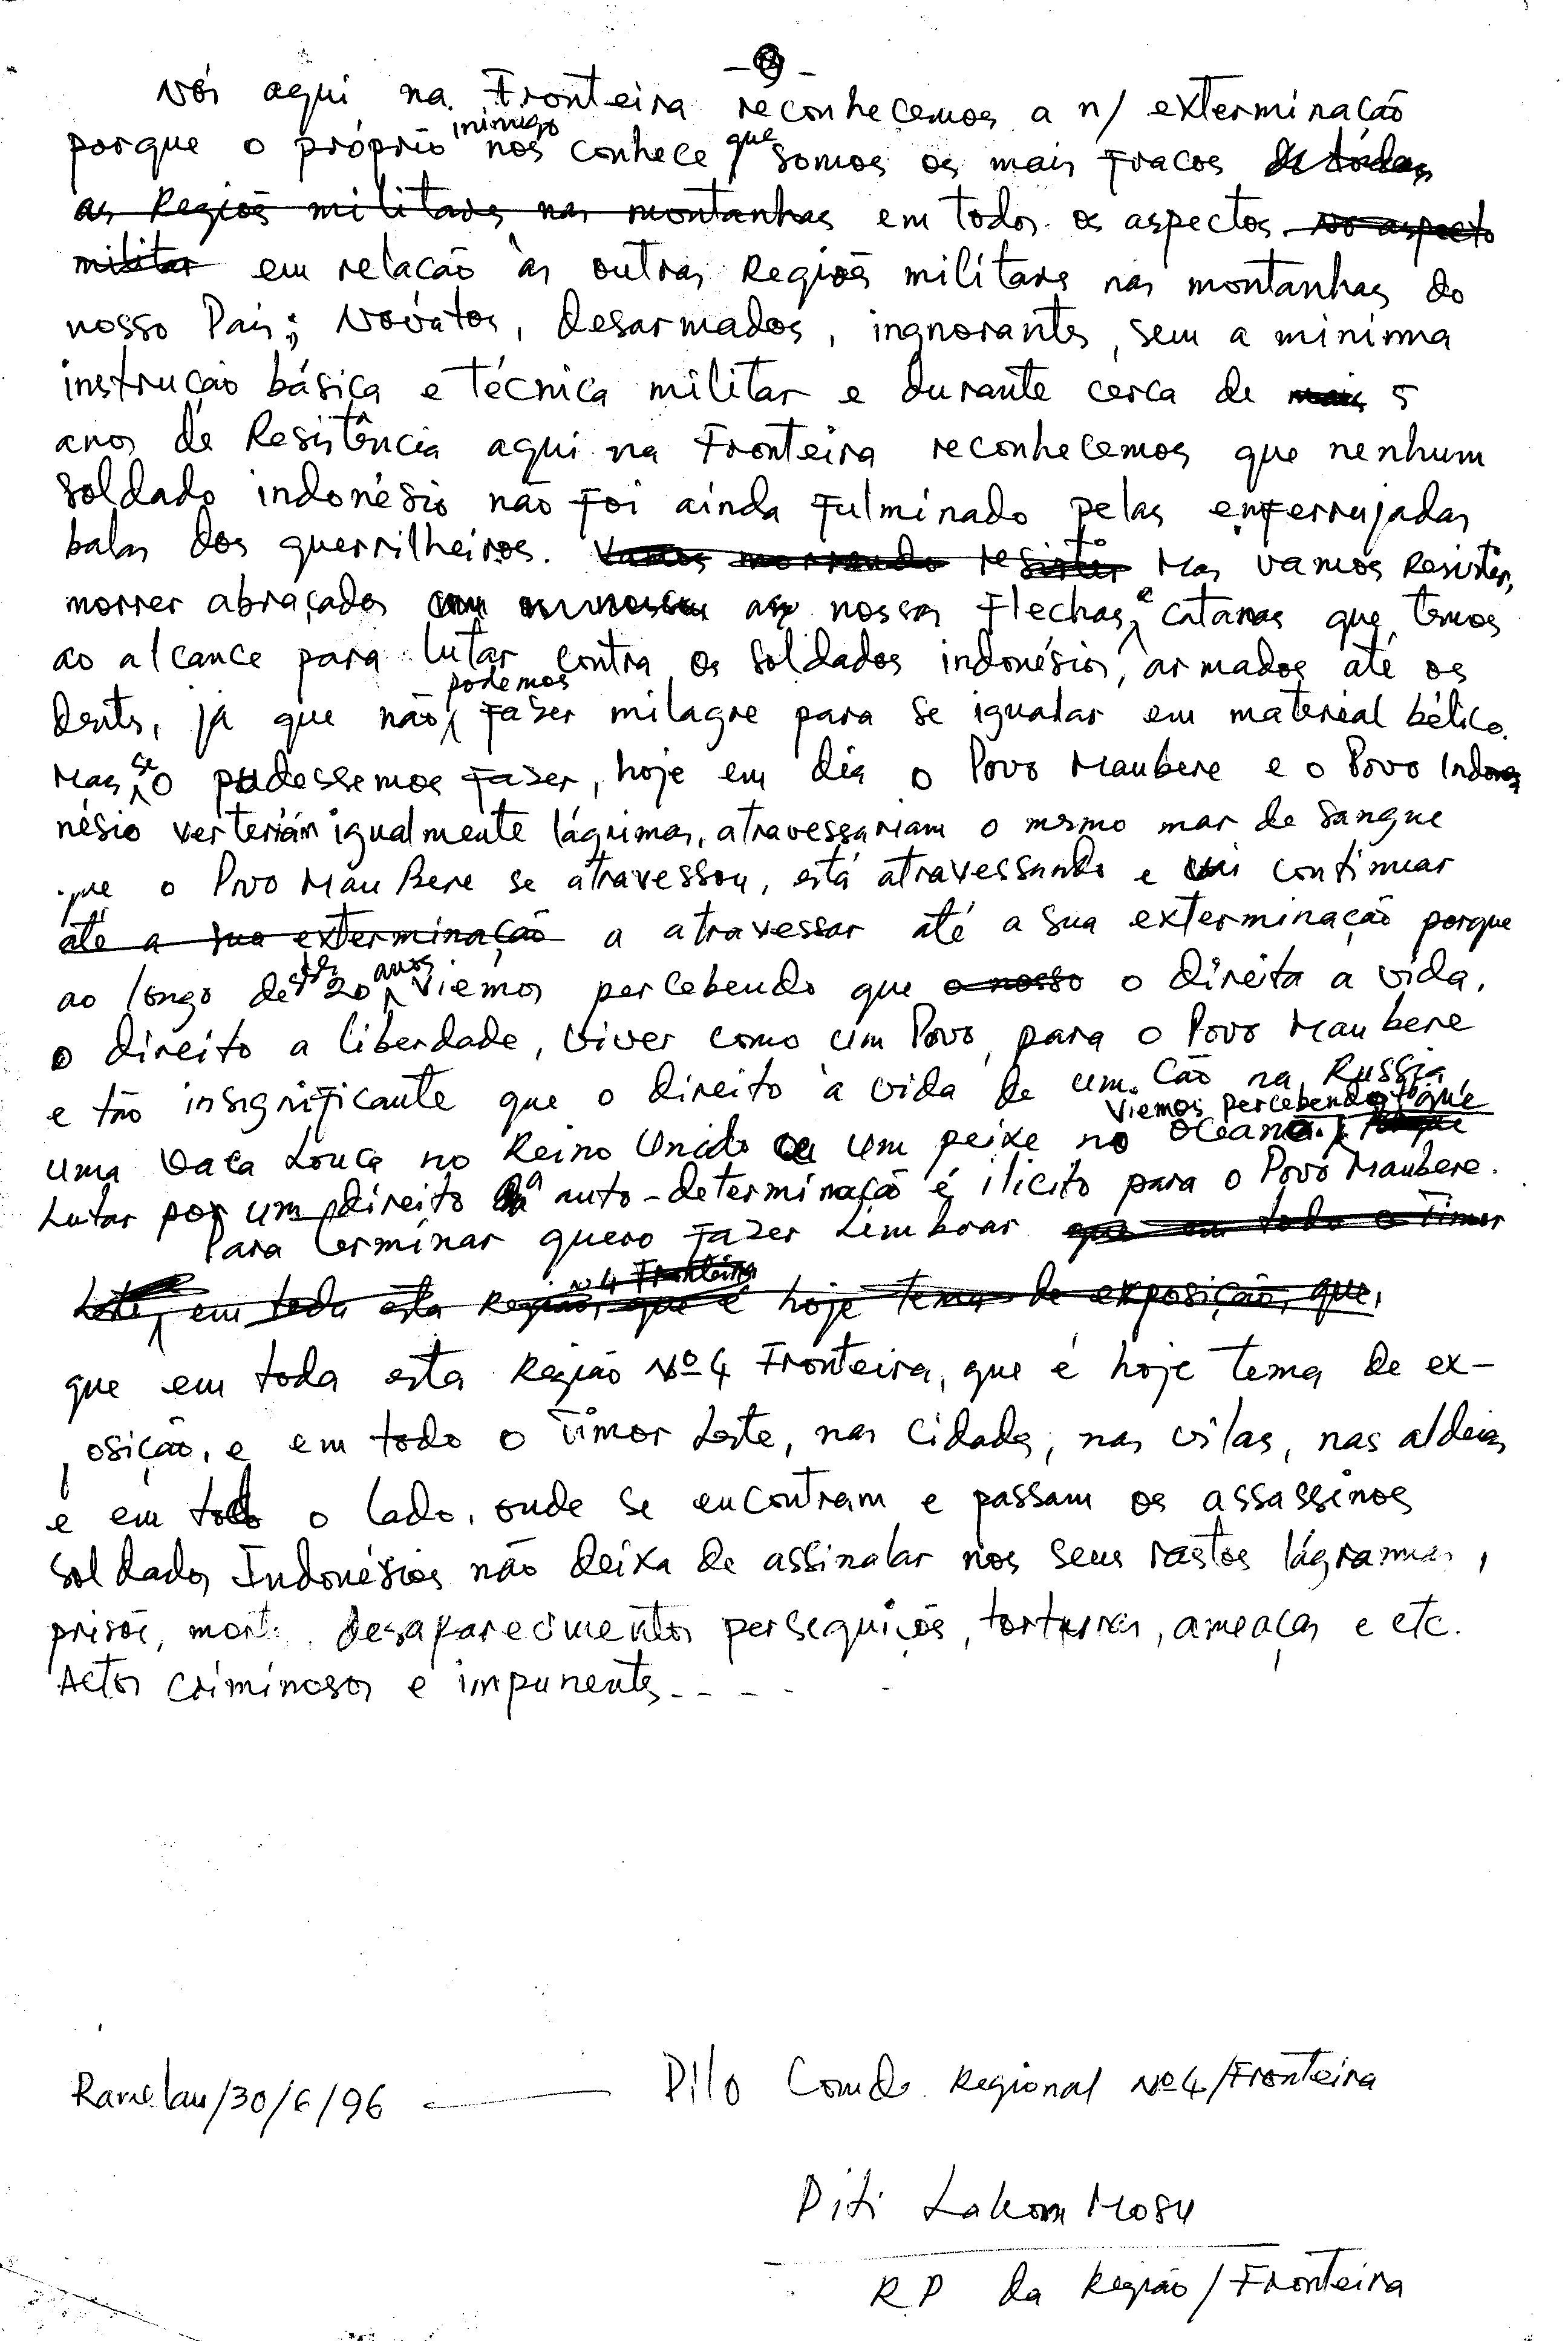 - 9 -
Nós aqui na Fronteira reconhecemos a n/ exterminação
porque o próprio inimigo nos conhece que somos os mais fracos de todas
as Regiõs militares nas montanhas em todos os aspectos no aspecto
militar em relação às outras Regiõs militares nas montanhas do
nosso Pais; Novátos, desarmados, ingnorantes, sem a minima
instrução básica e técnica militar e durante cerca de mais 5
anos de Resistência aqui na Fronteira reconhecemos que nenhum
soldado indonésio não foi ainda fulminado pelas enferrujadas
balas dos guerrilheiros. Vamos morrendo resistir Mas vamos Resistir,
morrer abraçados as nossas Flechas e catanas que temos
ao alcance para lutar contra os soldados indonésios, armados até os
dentes, já que não podemos fazer milagre para se igualar em material bélico.
Mas se o pudessemos fazer, hoje em dia o Povo Maubere e o Povo Indo
nésio verteriám igualmente lágrimas, atravessariam o mesmo mar de sangue
que o Povo Mau Bere se atravessou, está atravessando e vai continuar
até a sua exterminação a atravessar até a sua exterminação porque
ao longo destes 20 anos viemos percebendo que o nosso o direita a vida,
o direito a liberdade, viver como um Povo, para o Povo Maubere
e tão insignificante que o direito à vida de um Cão na Russia
uma Vaca Louca no Reino Unido ou um peixe no oceano. Viemos percebendo que
Lutar por um direito a auto-determinação é ilicito para o Povo Maubere.
Para terminar quero fazer Lembrar que em todo o Timor
Leste, em toda esta Região nº 4 Fronteira que é hoje tema de exposição, que,
que em toda esta Região Nº 4 Fronteira, que é hoje tema de ex-
posição, e em todo o Timor Leste, nas cidades, nas vilas, nas aldeias
e em todo o lado, onde se encontram e passam os assassinos
soldados Indonésios não deixa de assinalar nos seus rastos lágrammas,
prisõe, morte, desaparecimentos perseguiçõs, torturas, ameaças e etc.
Actos criminosos e impunentes.....
Ramelau/30/6/96 —— Pilo Comdo. Regional Nº 4/Fronteira
Piti Lakon Mosu
RP da Região/Fronteira